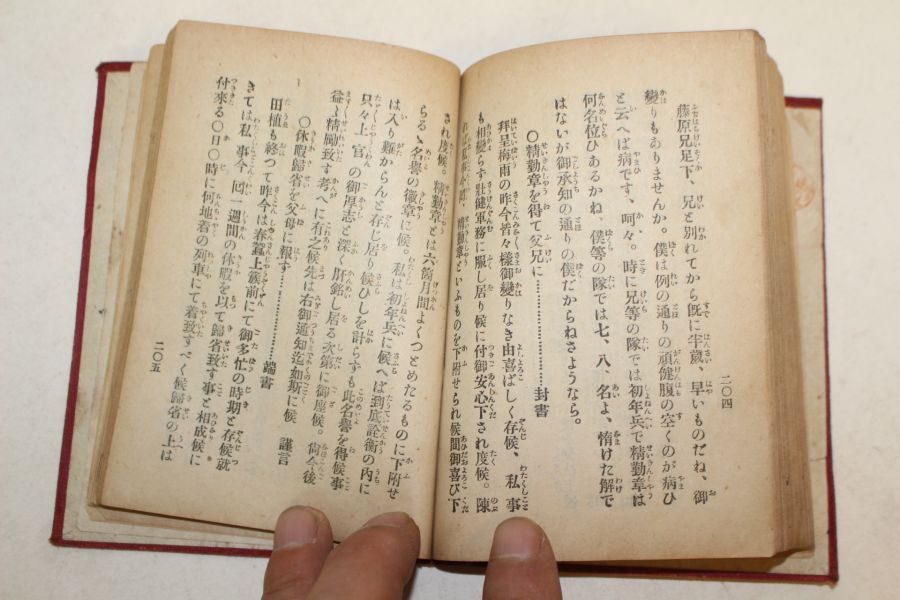 二〇四
藤原兄足下、兄と別れてから既に半歳、早いものだね、御
變りもありませんか。僕は例の通りの頑健腹の空くのが病ひ
と云へば病です、呵々。時に兄等の隊では初年兵で精勤章は
何名位ひあるかね、僕等の隊では七、八、名よ、惰けた解で
はないが御承知の通りの僕だからねさようなら。
〇精勤章を得て父兄に…………………………封書
拜呈梅雨の昨今皆々樣御變りなき由喜ばしく存候、私事
も相變らず壯健軍務に服し居り候に付御安心下され度候。陳
精勤章といふものを下附せられ候間御喜び下
され度候。精勤章とは六箇月間よくつとめたるものに下附せ
らるゝ名譽の徽章に候。私は初年兵に候へば到底詮衡の內に
は入り難からんと存じ居り候ひしを計らずも此名譽を得候事
只々上官の御厚志と深く肝銘し居る次第に御座候。尙今後
益々精勵致す考へに有之候先は右御通知迄如斯に候　謹言
〇休暇歸省を父母に報す…………………端書
田植も終つて昨今は春蠶上簇前にて御多忙の時期と存候就
きては私事今回一週間の休暇を以て歸省致す事と相成候に
付來る〇日〇時に何地着の列車にて着致すべく候歸省の上は
二〇五